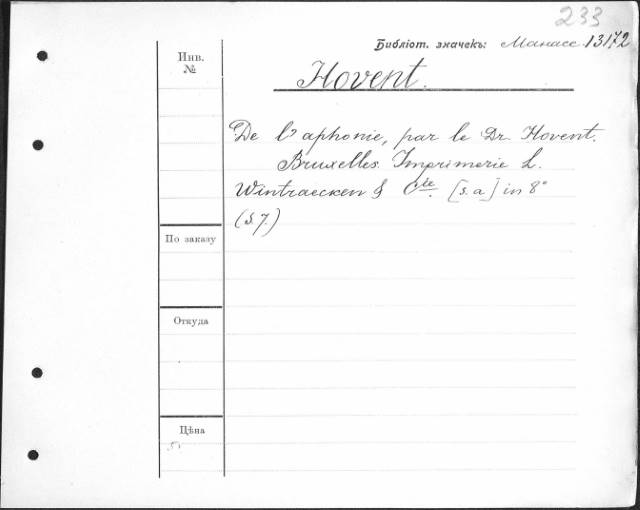 233
Библіот. значекъ: Манасс. 13172
Инв.
№
Hovent.
De l'aphonie, par le Dr. Hovent.
Bruxelles. Imprimerie L.
Wintraecken & Cie. [s.a] in 8°
(s. 7.)
По заказу
Откуда
Цѣна